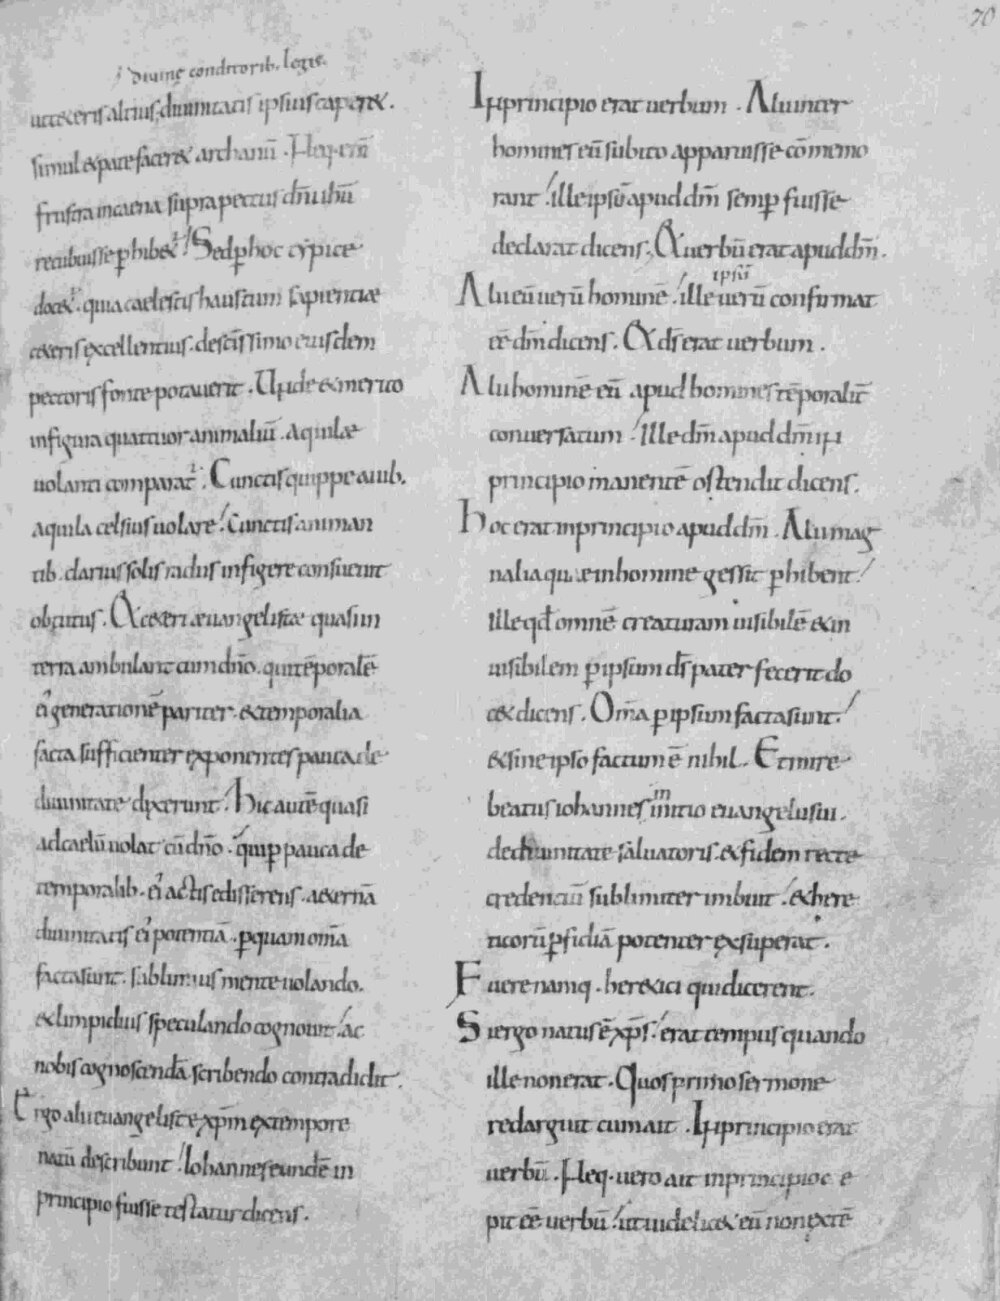 70
diuinę conditorib. legis.
ut ceteris altius diuinitatis ipsius caperet.
simul & patefaceret archanū. Neq; enī
frustra in caena supra pectus dn̄i ihū
recubuisse phibet˙! Sed p hoc typice
docet˙. quia caelestis haustum sapientiae
ceteris excellentius. desc̄issimo eiusdem
pectoris fonte potauerit. Unde & merito
in figura quattuor animaliū. aquilae
uolanti comparat˙. Cunctis quippe auib.
aquila celsius uolare! Cunctis animan
tib. clarius solis radiis infigere consueuit
obtutus. Et ceteri aeuangelistae quasi in
terra ambulant cum dn̄o. qui tēporalē
ei generationē pariter. & temporalia
facta sufficienter exponentes pauca de
diuinitate dixerunt! Hic autē quasi
ad caelū uolat cū dn̄o. qui p pauca de
temporalib. ei actis edisserens. aeternā
diuinitatis ei potentiā. p quam om̄a
facta sunt. sublimius mente uolando.
& limpidius speculando cognouit! ac
nobis cognoscendā scribendo contradidit.
Ergo alii euangeliste xp̄m ex tempore
natū describunt! Iohannes eundē in
principio fuisse testatur dicens.
IN principio erat uerbum. Alii inter
homines eū subito apparuisse cōmemo
rant! ille ipsū apud dm̄ semp fuisse
declarat dicens. Et uerbū erat apud dm̄.
Alii eū uerū hominē! ille ipsū uerū confirmat
eē dm̄ dicens. Et ds̄ erat uerbum.
Alii hominē eū apud homines tēporalit̄
conuersatum! Ille dm̄ apud dm̄ IN
principio manentē ostendit dicens.
Hoc erat in principio apud dm̄. Alii mag
nalia quae in homine gessit phibent!
Ille qd̄ omnē creaturam uisibilē & in
uisibilem p ipsum ds̄ pater fecerit do
cet dicens. Om̄a p ipsum facta sunt!
& sine ipso factum ē nihil. Et mire
beatus iohannes in initio euangelii sui.
de diuinitate saluatoris. & fidem recte
credentiū sublimiter imbuit! & here
ticorū pfidiā potenter exsuperat.
Fuere namq. heretici qui dicerent.
Si ergo natus ē xp̄s! erat tempus quando
ille non erat. Quos primo sermone
redarguit cum ait. IN principio erat
uerbū. Neq. uero ait in principio c e
pit eē uerbū! ut uidelicet eū non ex tē